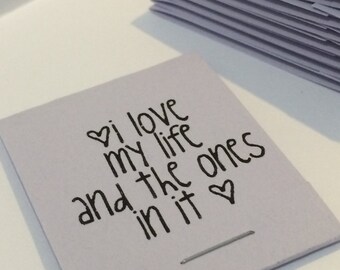 ♡i love
my life
and the ones
in it ♡